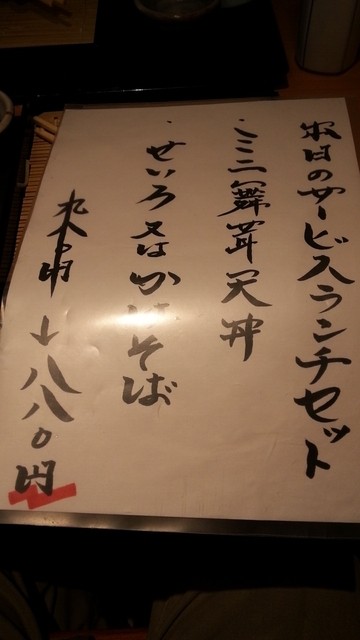 本日のサービスランチセット
・ミニ舞茸天丼
・せいろ又はかけそば
↓八八〇円